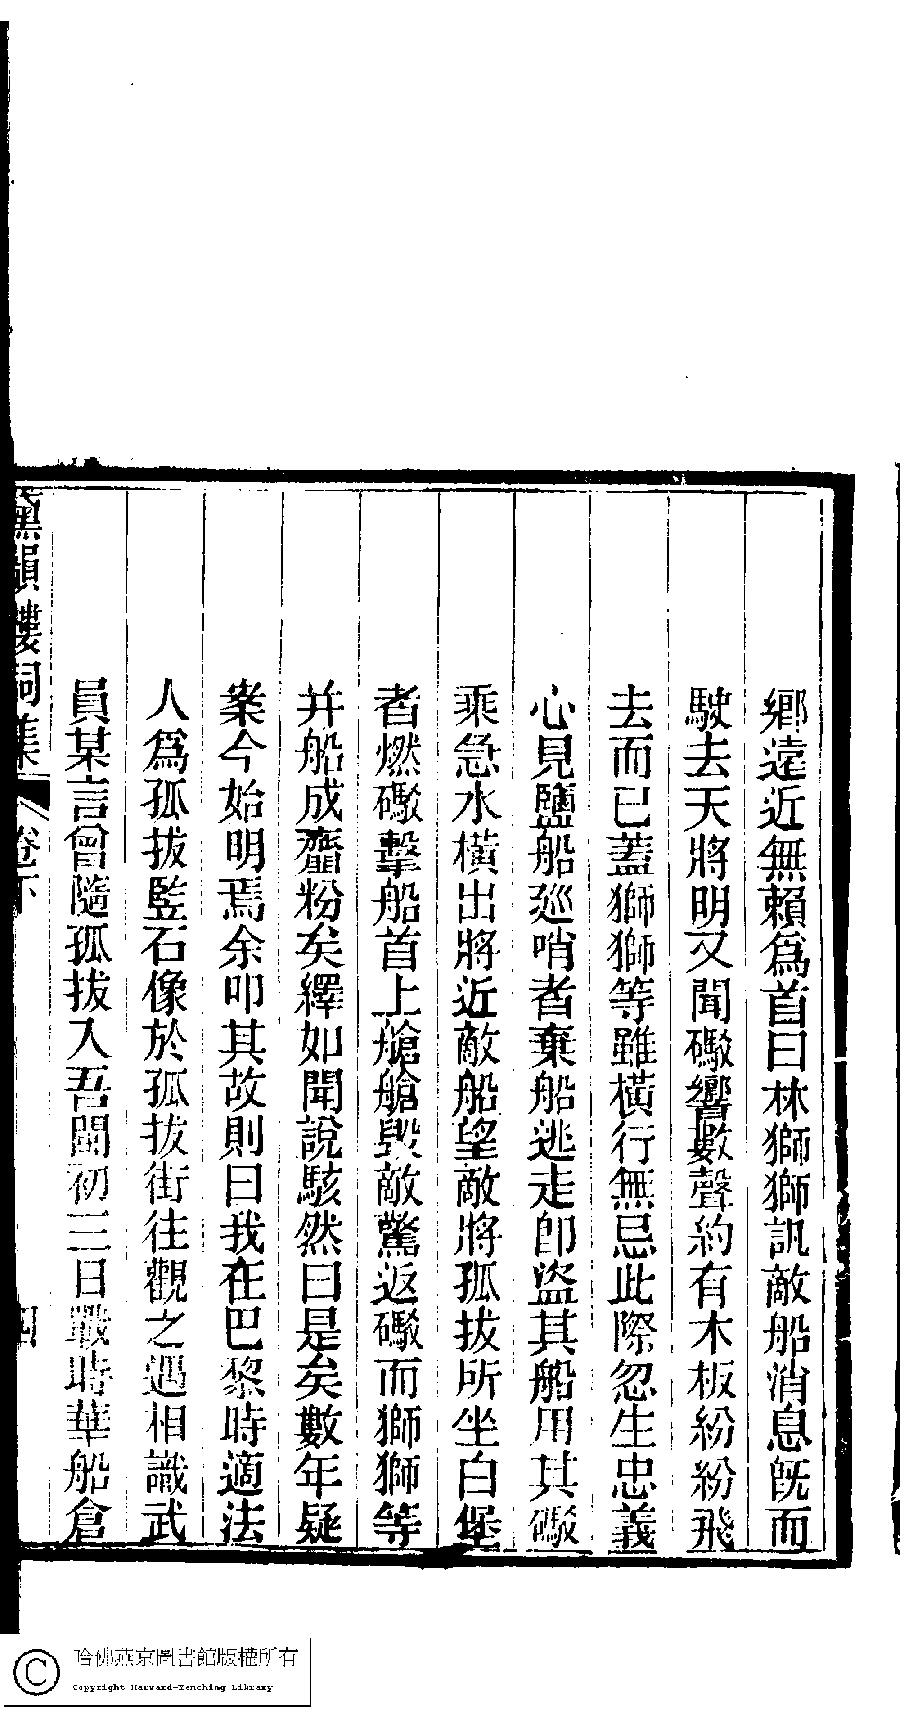 鄉遠近無賴爲首曰林獅獅訊敵船消息旣而
駛去天將明又聞礮響數聲約有木板紛紛飛
去而已蓋獅獅等雖橫行無忌此際忽生忠義
心見鹽船巡哨者棄船逃走卽盜其船用其礮
乘急水橫出將近敵船望敵將孤拔所坐白堡
者燃礮擊船首上艙艙毁敵驚返礮而獅獅等
并船成虀粉矣繹如聞說駭然曰是矣數年疑
案今始明焉余叩其故則曰我在巴黎時適法
人爲孤拔監石像於孤拔街往觀之遇相識武
員某言曾隨孤拔入吾閩初三日戰時華船倉
黛韻樓詞集 卷下 四
哈佛燕京圖書館版權所有
Copyright Harvard-Yenching Library